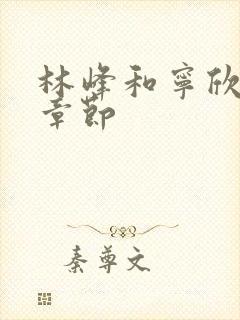 林峰和宁欣
章节
秦尊文